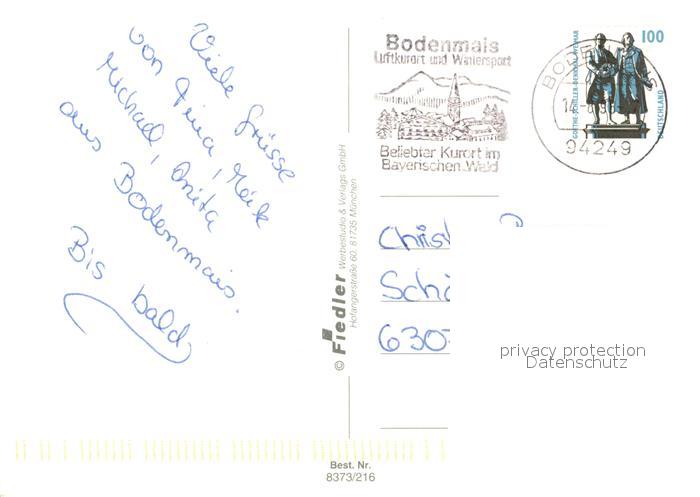 Viele Grüsse
von Tina, Meik
Michael, Anita
aus Bodenmais.
Bis bald
Bodenmais
Luftkurort und Wintersport
Beliebter Kurort im
Bayerischen Wald
94249
100
GOETHE-SCHILLER-DENKMAL WEIMAR
DEUTSCHLAND
© Fiedler Werbestudio & Verlags GmbH
Hofangerstraße 60, 81735 München
Christ
Schä
630
privacy protection
Datenschutz
Best. Nr.
8373/216